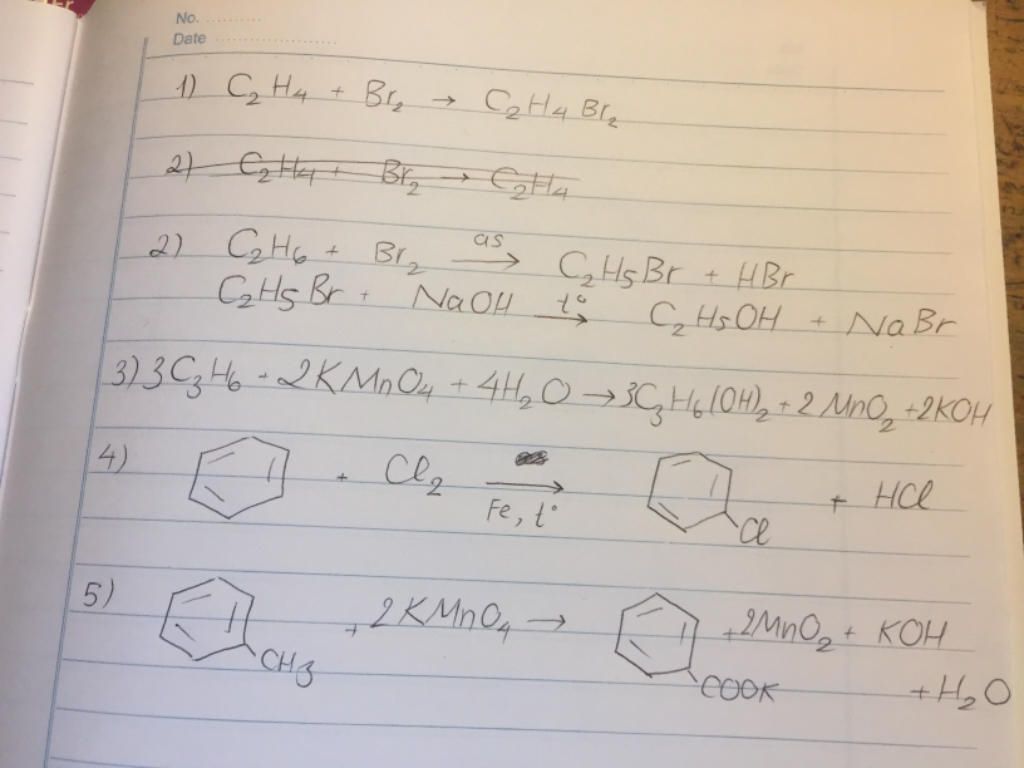 No. ..........
Date ....................
1) C₂H₄ + Br₂ → C₂H₄Br₂
2) C₂H₄ + Br₂ → C₂H₄
2) C₂H₆ + Br₂ as→ C₂H₅Br + HBr
C₂H₅Br + NaOH t°→ C₂H₅OH + NaBr
3) 3C₃H₆ + 2KMnO₄ + 4H₂O → 3C₃H₆(OH)₂ + 2MnO₂ + 2KOH
4) + Cl₂ → Fe, t° Cl + HCl
5) CH₃ + 2KMnO₄ → COOK + 2MnO₂ + KOH
+ H₂O